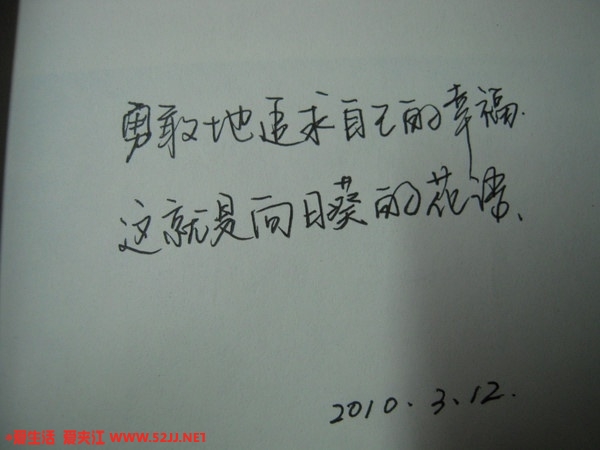 勇敢地追求自己的幸福.
这就是向日葵的花语、
2010.3.12.
爱生活 爱夹江 WWW.52JJ.NET